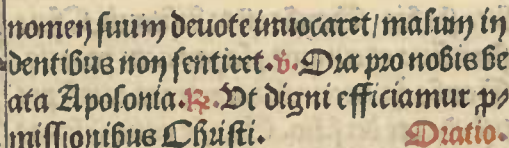 nomen suum deuote inuocaret/ malum in
dentibus non sentiret. v. Ora pro nobis be
ata Apolonia. R. Ut digni efficiamur p⸗
missionibus Christi. Oratio.